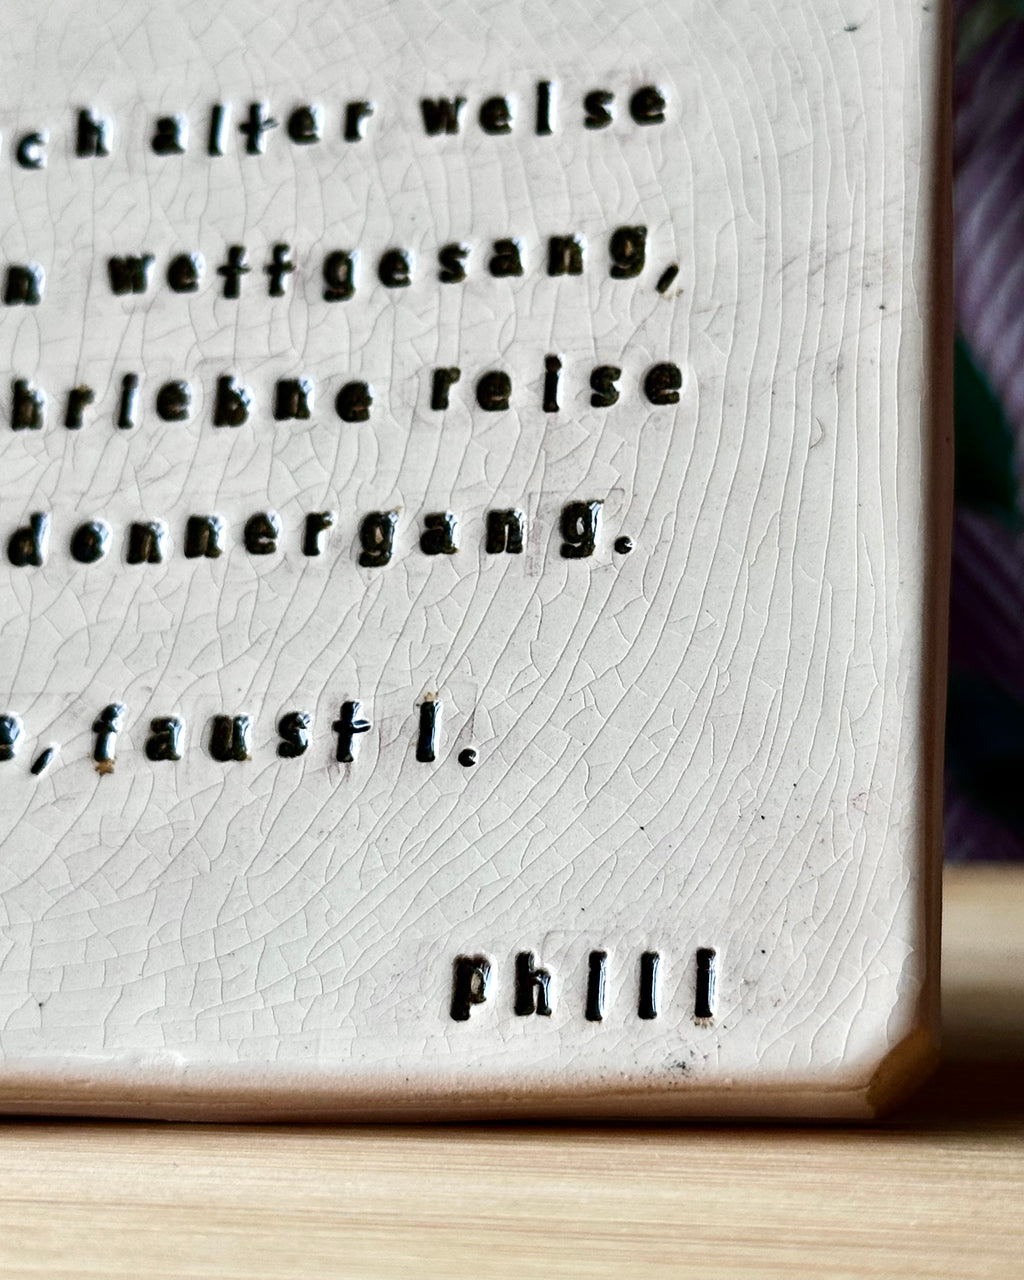 ch alter weise
n wettgesang,
hriebne reise
donnergang.
e, faust i.
phill